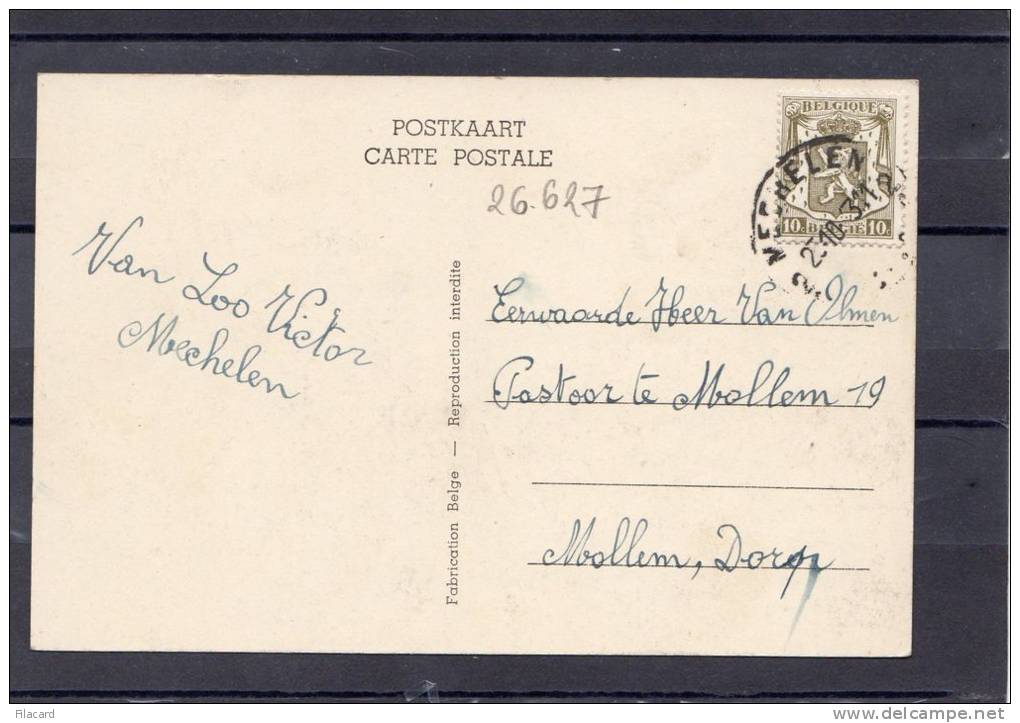 POSTKAART
CARTE POSTALE
26.627
BELGIQUE
10c BELGIË 10c
MECHELEN
Van Loo Victor
Mechelen
Fabrication Belge — Reproduction interdite
Eerwaarde Heer Van Olmen
Pastoor te Mollem 19
Mollem, Dorp
Filacard
www.delcampe.net